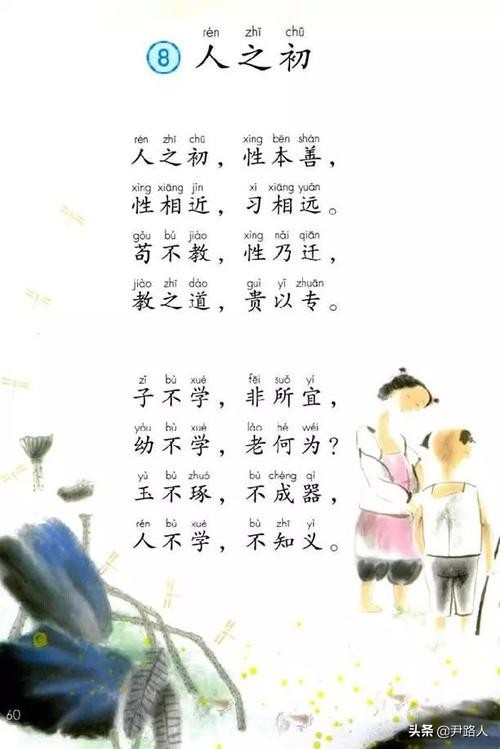 rén zhī chū
8 人之初
rén zhī chū xìng běn shàn
人之初，性本善，
xìng xiāng jìn xí xiāng yuǎn
性相近，习相远。
gǒu bú jiào xìng nǎi qiān
苟不教，性乃迁，
jiào zhī dào guì yǐ zhuān
教之道，贵以专。
zǐ bù xué fēi suǒ yí
子不学，非所宜，
yòu bù xué lǎo hé wéi
幼不学，老何为？
yù bù zhuó bù chéng qì
玉不琢，不成器，
rén bù xué bù zhī yì
人不学，不知义。
60
头条 @尹路人